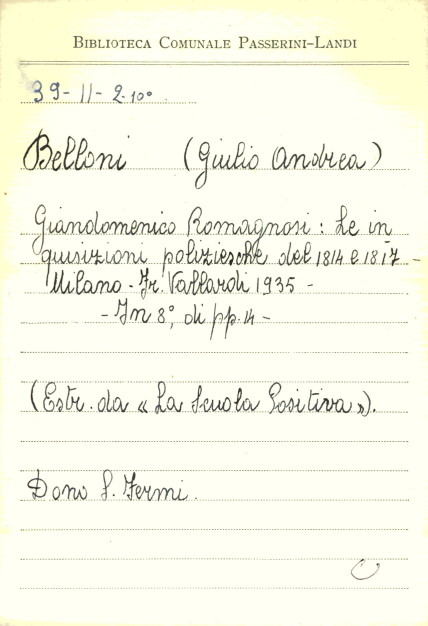 BIBLIOTECA COMUNALE PASSERINI-LANDI
39-11-2.10°
Belloni (Giulio Andrea)
Giandomenico Romagnosi: Le in
quisizioni poliziesche del 1814 e 1817 -
Milano - Fr. Vallardi 1935 -
- In 8°, di pp. 14 -
(Estr. da « La Scuola Positiva »).
Dono S. Fermi.